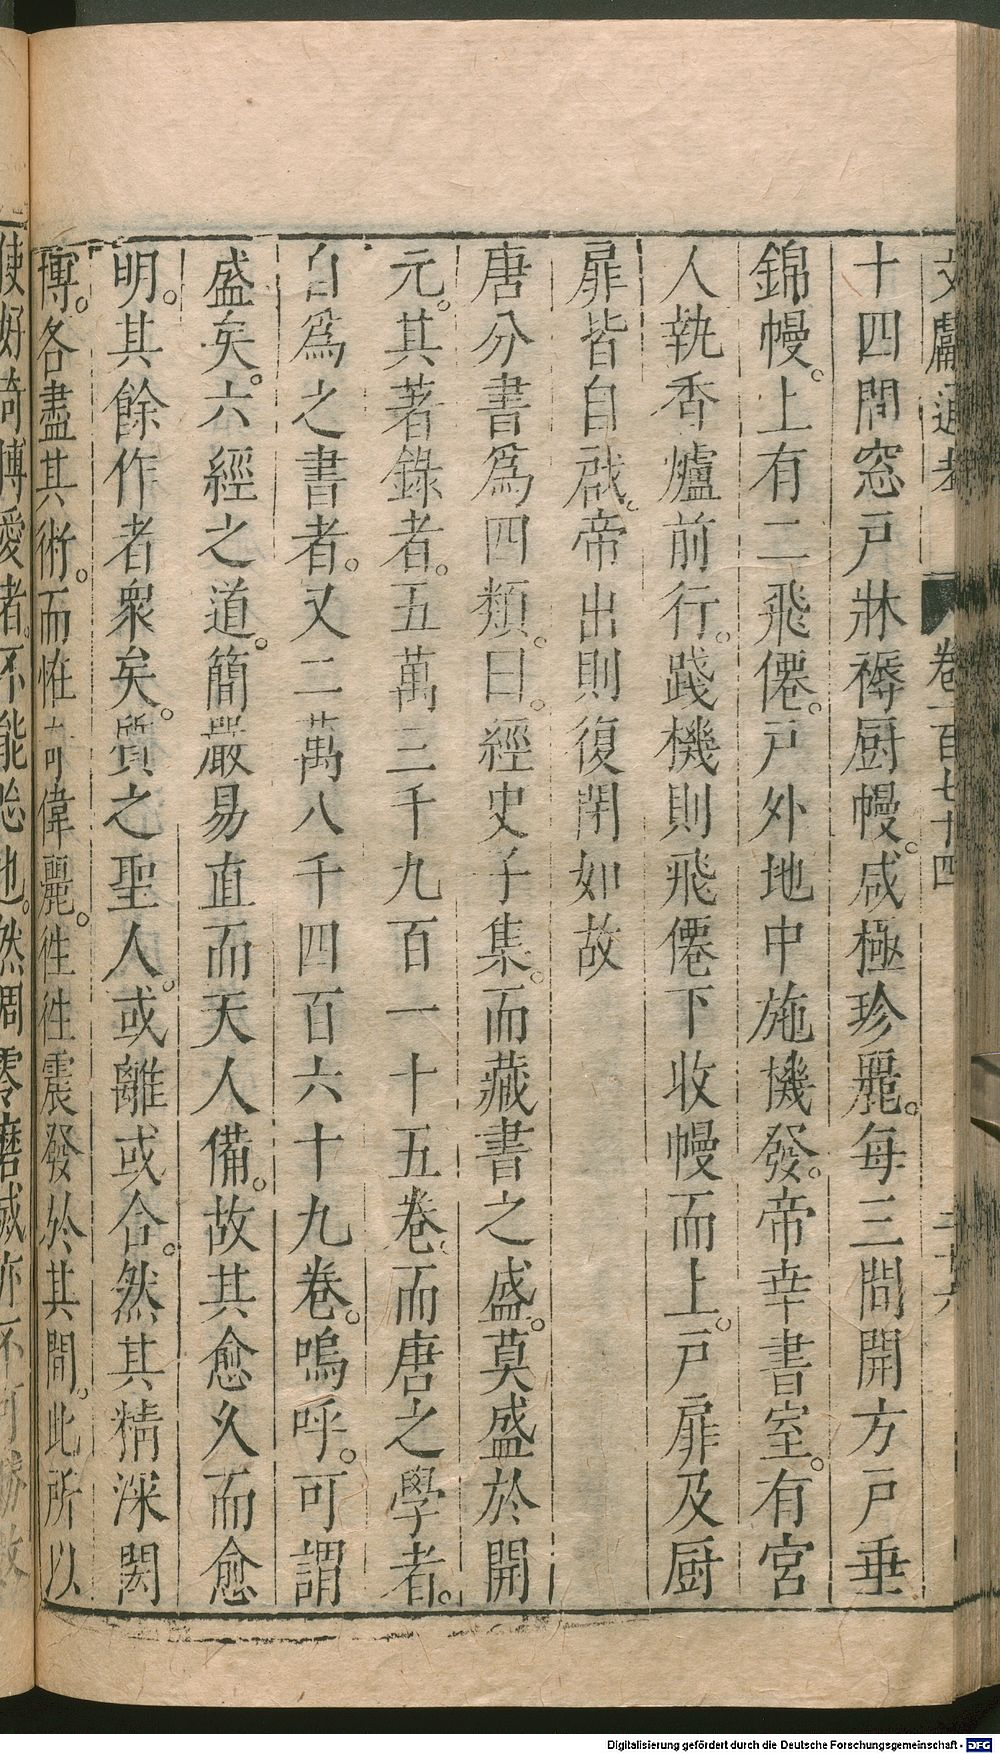 文獻通考 卷一百七十四 三十六
十四間窓戸牀褥厨幔。咸極珍麗。每三間開方戸垂
錦幔。上有二飛僊。戸外地中施機發。帝幸書室。有宮
人執香爐前行。踐機則飛僊下收幔而上。戸扉及厨
扉皆自啟。帝出則復閉如故
唐分書爲四類。曰。經史子集。而藏書之盛。莫盛於開
元。其著錄者。五萬三千九百一十五卷。而唐之學者。
自爲之書者。又二萬八千四百六十九卷。嗚呼。可謂
盛矣。六經之道。簡嚴易直而天人備。故其愈久而愈
明。其餘作者衆矣。質之聖人。或離或合。然其精深閎
博。各盡其術。而怪奇偉麗。徃徃震發於其間。此所以
使好竒博愛者。不能忘也。然凋零磨滅亦不可勝數
Digitalisierung gefördert durch die Deutsche Forschungsgemeinschaft - DFG